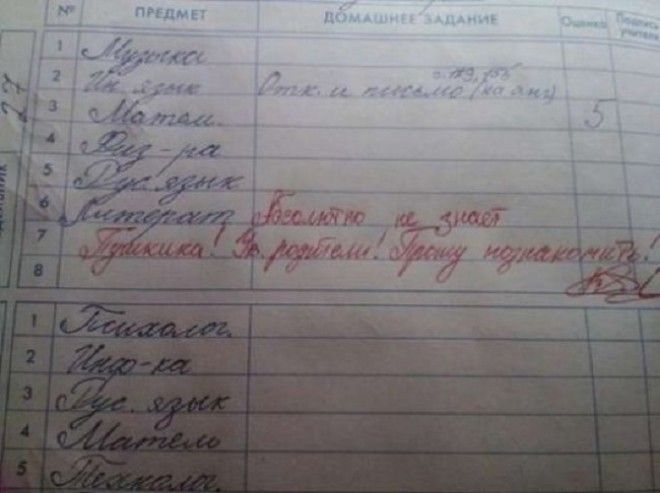 № ПРЕДМЕТ ДОМАШНЕЕ ЗАДАНИЕ Оценка Подпись учителя
1 Музыка
2 Ин. язык Отк. и письмо (на анг)
3 Матем. 5
4 Физ-ра
5 Рус. язык
6 Литерат Абсолютно не знает
7 Пушкина! Ув. родители! Прошу познакомить!
8
1 Психолог.
2 Инф-ка
3 Рус. язык
4 Матем
5 Технолог.
27